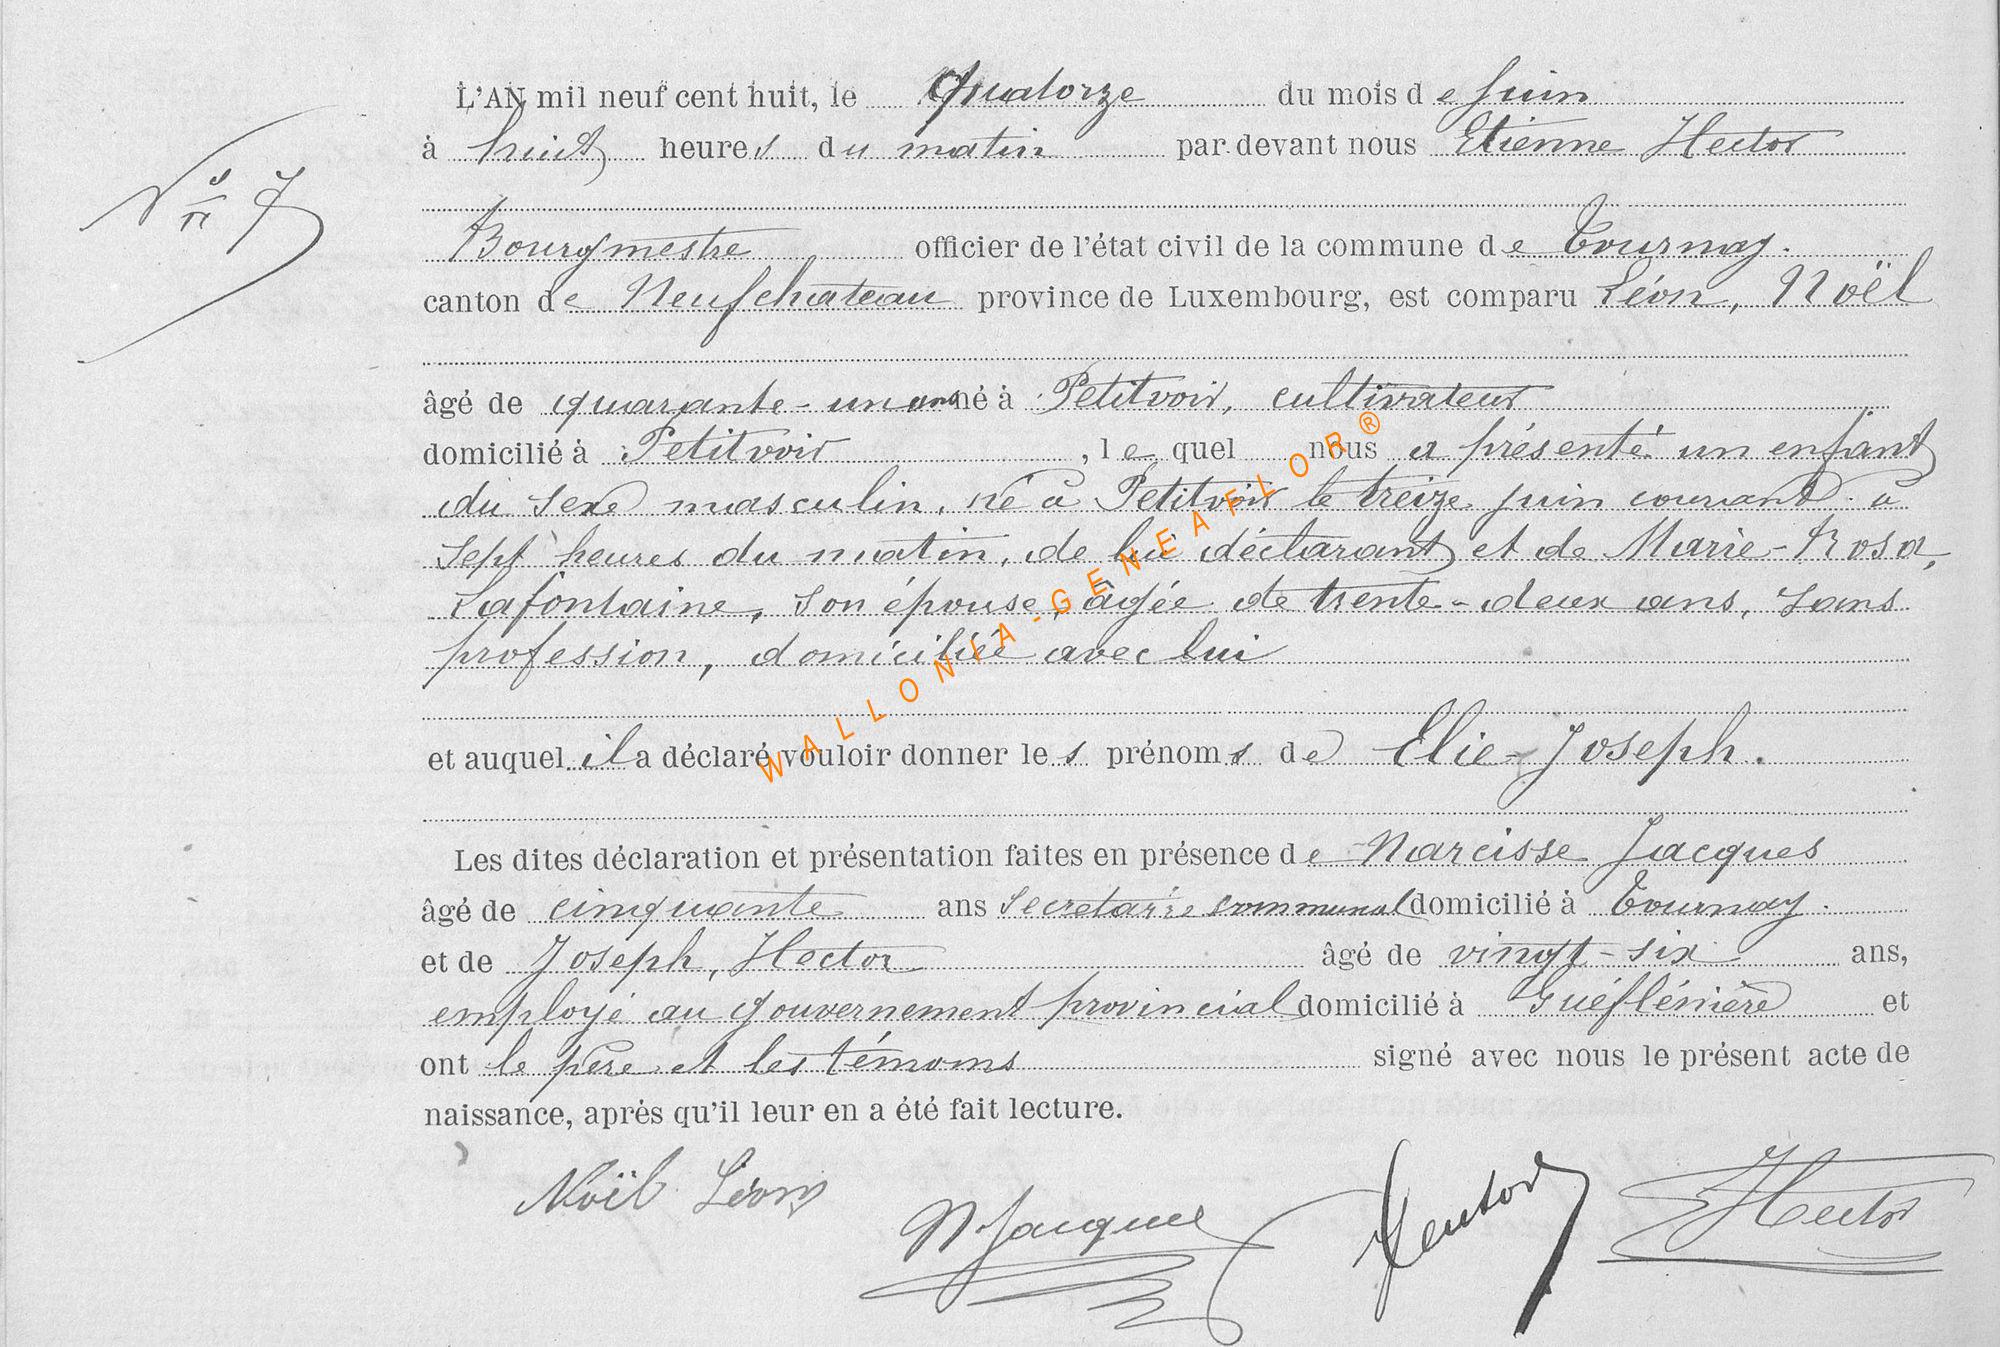 L'AN mil neuf cent huit, le Quatorze du mois de Juin
à huit heures du matin par devant nous Etienne Hector
N° 7
Bourgmestre officier de l'état civil de la commune de Tournay.
canton de Neufchateau province de Luxembourg, est comparu Léon, Noël
âgé de quarante-un ans né à Petitvoir, cultivateur
domicilié à Petitvoir, lequel nous a présenté un enfant
du sexe masculin, né à Petitvoir le treize juin courant à
sept heures du matin, de lui déclarant et de Marie-Rosa,
Lafontaine, son épouse, âgée de trente-deux ans, sans
profession, domiciliée avec lui
et auquel il a déclaré vouloir donner les prénoms de Elie-Joseph.
Les dites déclaration et présentation faites en présence de Narcisse Jacques
âgé de cinquante ans secretaire communal domicilié à Tournay.
et de Joseph, Hector âgé de vingt-six ans,
employé au gouvernement provincial domicilié à Grieflénière et
ont le père et les témoins signé avec nous le présent acte de
naissance, après qu'il leur en a été fait lecture.
Noël Léon
N Jacques
Hector
Hector
WALLONIA-GENEAFLOR®